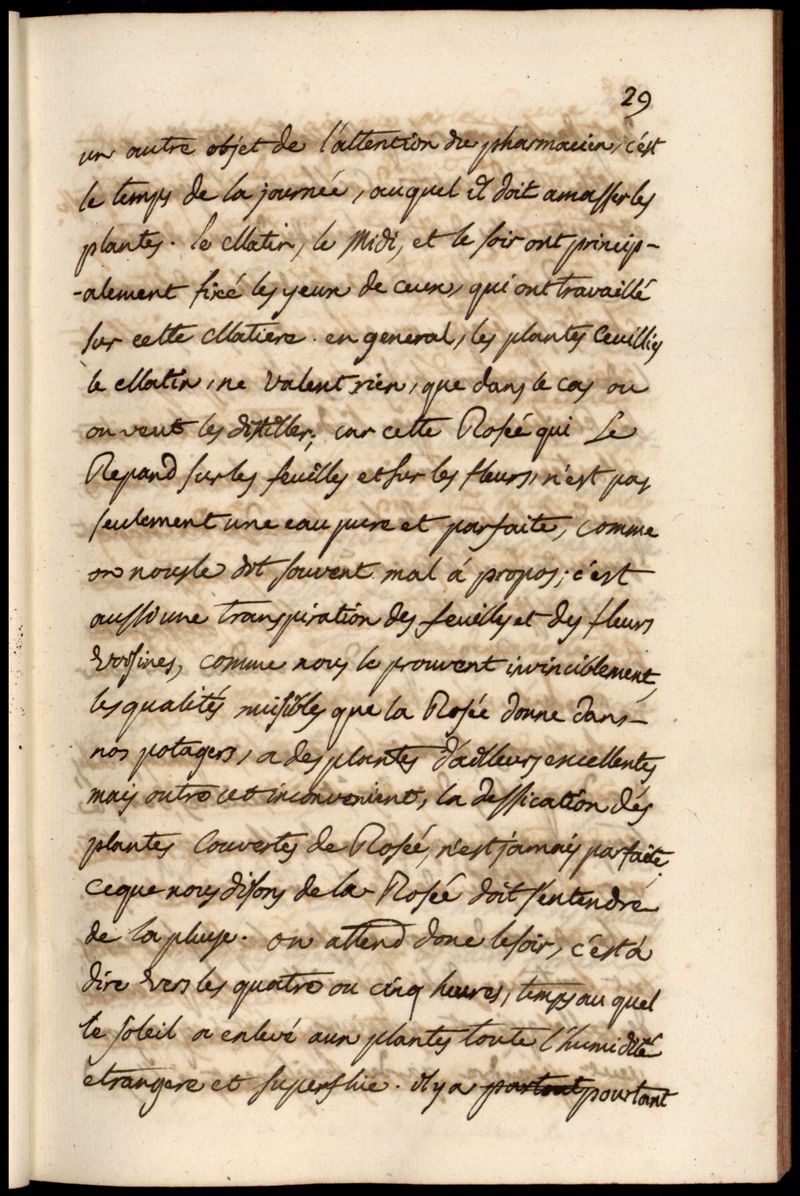 29
un autre objet de l'attention du pharmacien, c'est
le temps de la journée, auquel il doit amasser les
plantes. le Matin, le Midi, et le soir ont princip-
-alement fixé les yeux de ceux, qui ont travaillé
sur cette Matiere. en general, les plantes Ceuillies
le Matin, ne valent rien, que dans le cas ou
on veut les distiller; car cette Rosée qui Se
Repand sur les feuilles et sur les fleurs, n'est pas
seulement une eau pure et parfaite, comme
on nous le dit souvent mal á propos; c'est
aussi une transpiration des feuilles et des fleurs
voisines, comme nous le prouvent invinciblement,
les qualités nuisibles que la Rosée donne dans-
nos potagers, a des plantes d'ailleurs excellentes
mais outre cet inconvenient, la dessication dés
plantes Couvertes de Rosée, n'est jamais parfaite
ce que nous disons de la Rosée doit s'entendre
de la pluye. on attend donc le soir, c'est à
dire vers les quatre ou cinq heures, temps au quel
le soleil a enlevé aux plantes toute l'humidité
etrangere et superflue. il y a partout pourtant